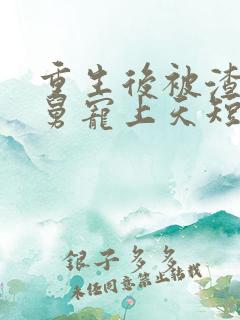 重生後被渣
舅寵上天短
銀子多多
未经同意禁止转载